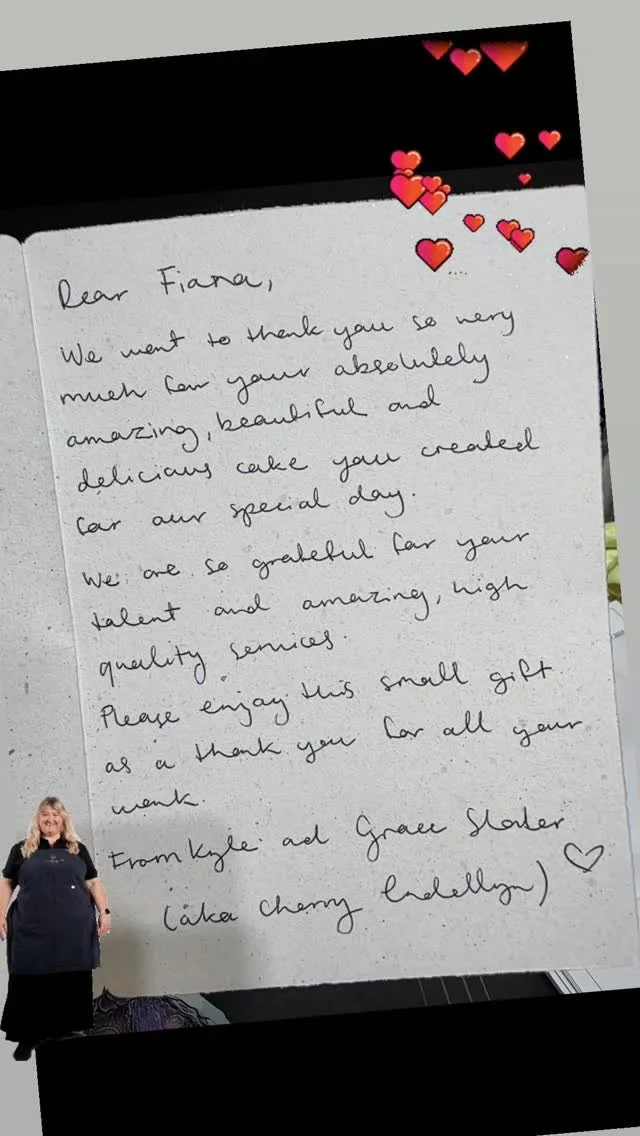 Dear Fiana,
We want to thank you so very
much for your absolutely
amazing, beautiful and
delicious cake you created
for our special day.
We are so grateful for your
talent and amazing, high
quality services.
Please enjoy this small gift
as a thank you for all your
work.
From Kyle ad Grace Slater
(aka Cherry